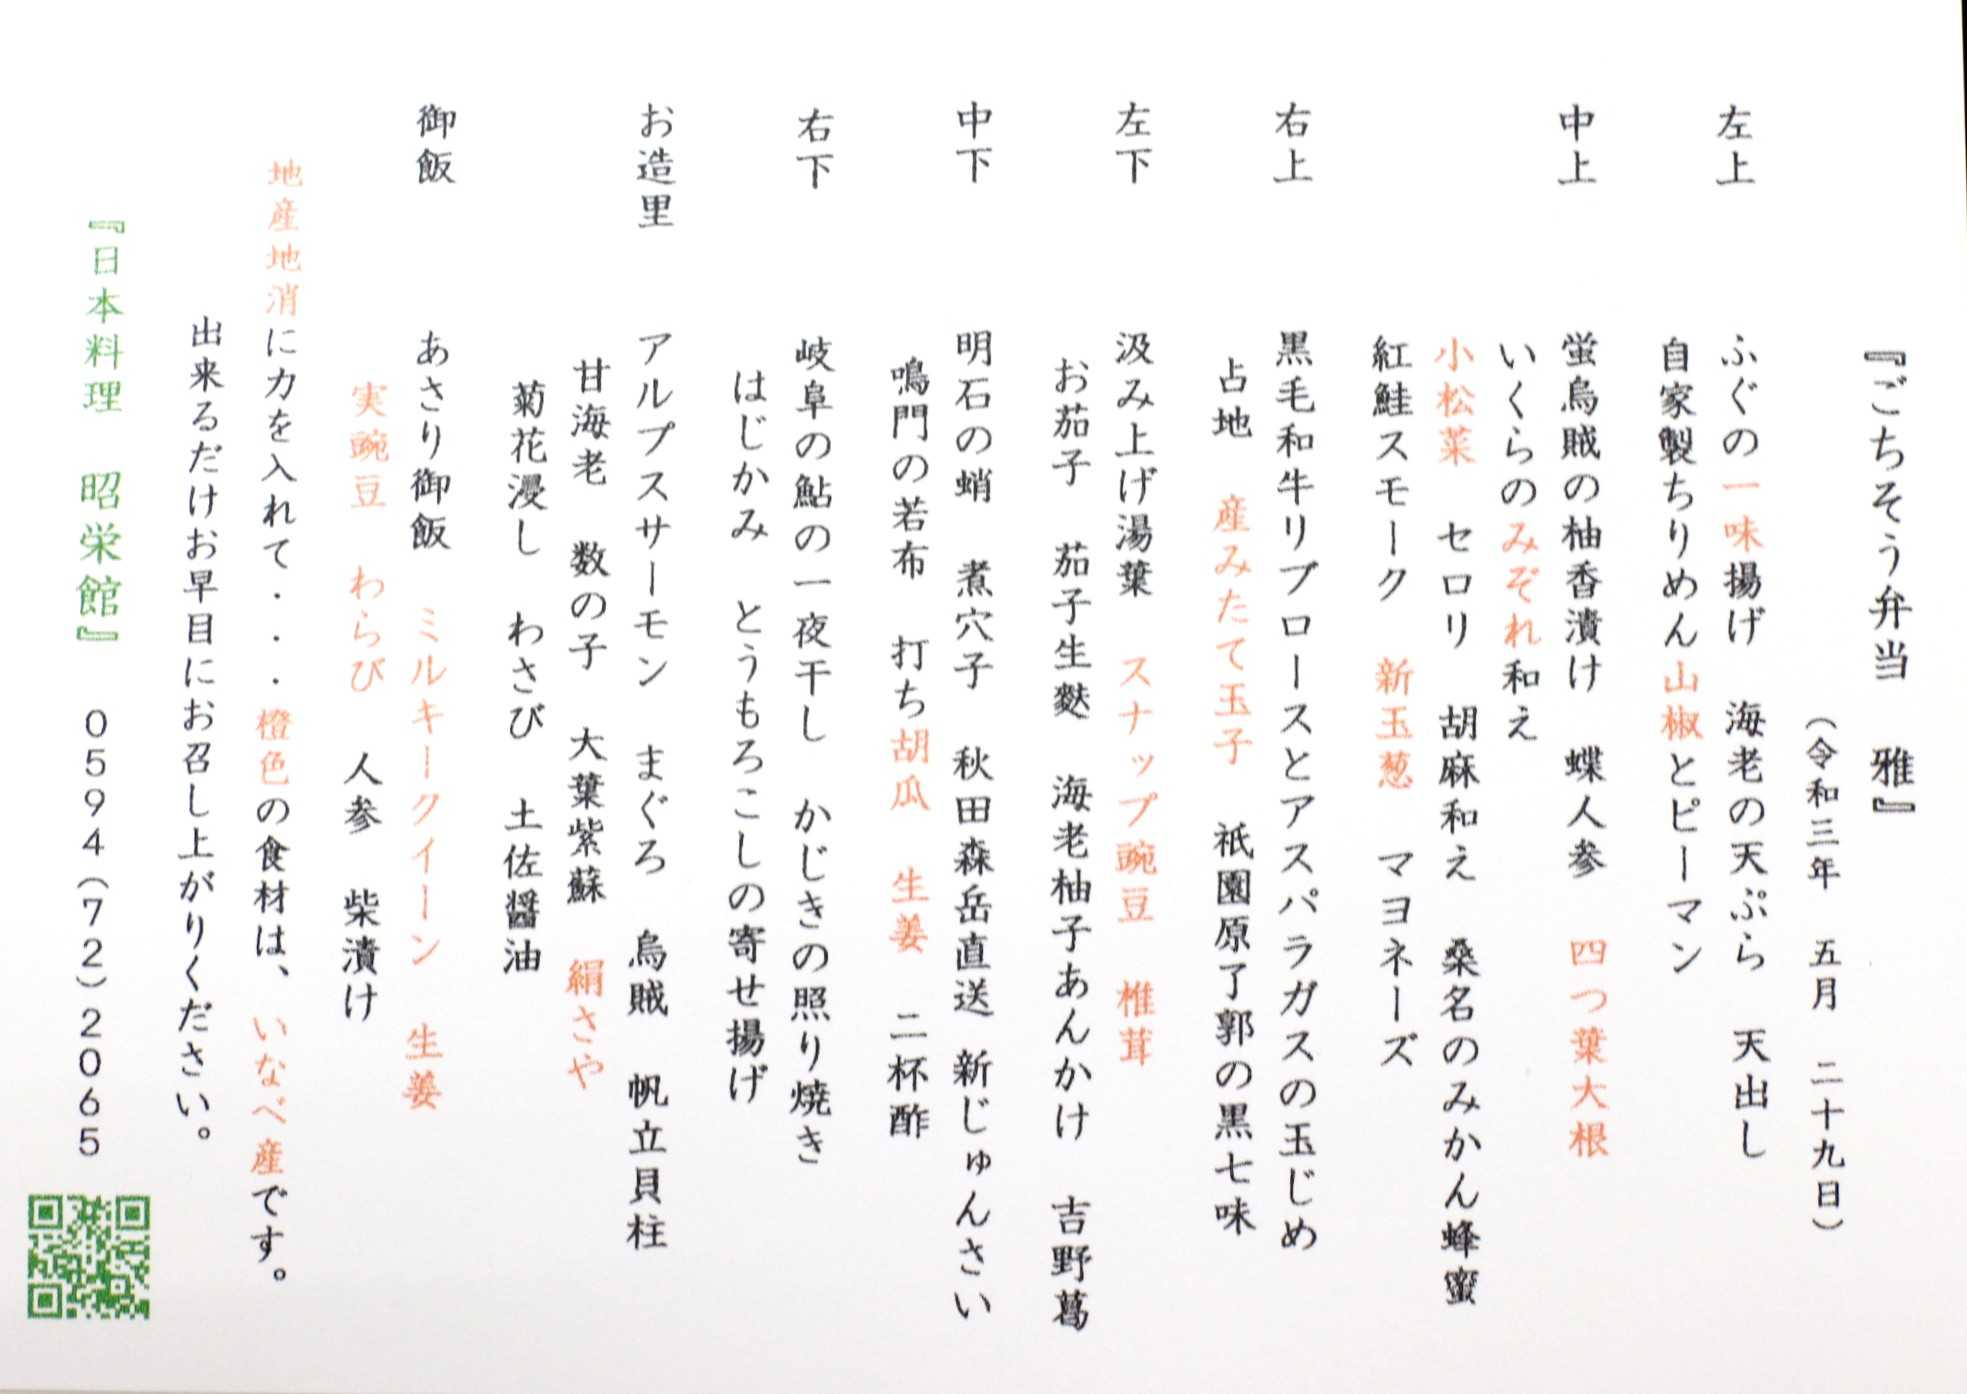 『ごちそう弁当　雅』
（令和三年　五月　二十九日）
左上　ふぐの一味揚げ　海老の天ぷら　天出し
自家製ちりめん山椒とピーマン
中上　蛍烏賊の柚香漬け　蝶人参　四つ葉大根
いくらのみぞれ和え
小松菜　セロリ　胡麻和え　桑名のみかん蜂蜜
紅鮭スモーク　新玉葱　マヨネーズ
右上　黒毛和牛リブロースとアスパラガスの玉じめ
占地　産みたて玉子　祇園原了郭の黒七味
左下　汲み上げ湯葉　スナップ豌豆　椎茸
お茄子　茄子生麩　海老柚子あんかけ　吉野葛
中下　明石の蛸　煮穴子　秋田森岳直送　新じゅんさい
鳴門の若布　打ち胡瓜　生姜　二杯酢
右下　岐阜の鮎の一夜干し　かじきの照り焼き
はじかみ　とうもろこしの寄せ揚げ
お造里　アルプスサーモン　まぐろ　烏賊　帆立貝柱
甘海老　数の子　大葉紫蘇　絹さや
菊花浸し　わさび　土佐醤油
御飯　あさり御飯　ミルキークイーン　生姜
実豌豆　わらび　人参　柴漬け
地産地消に力を入れて・・・橙色の食材は、いなべ産です。
出来るだけお早目にお召し上がりください。
『日本料理　昭栄館』　０５９４（７２）２０６５